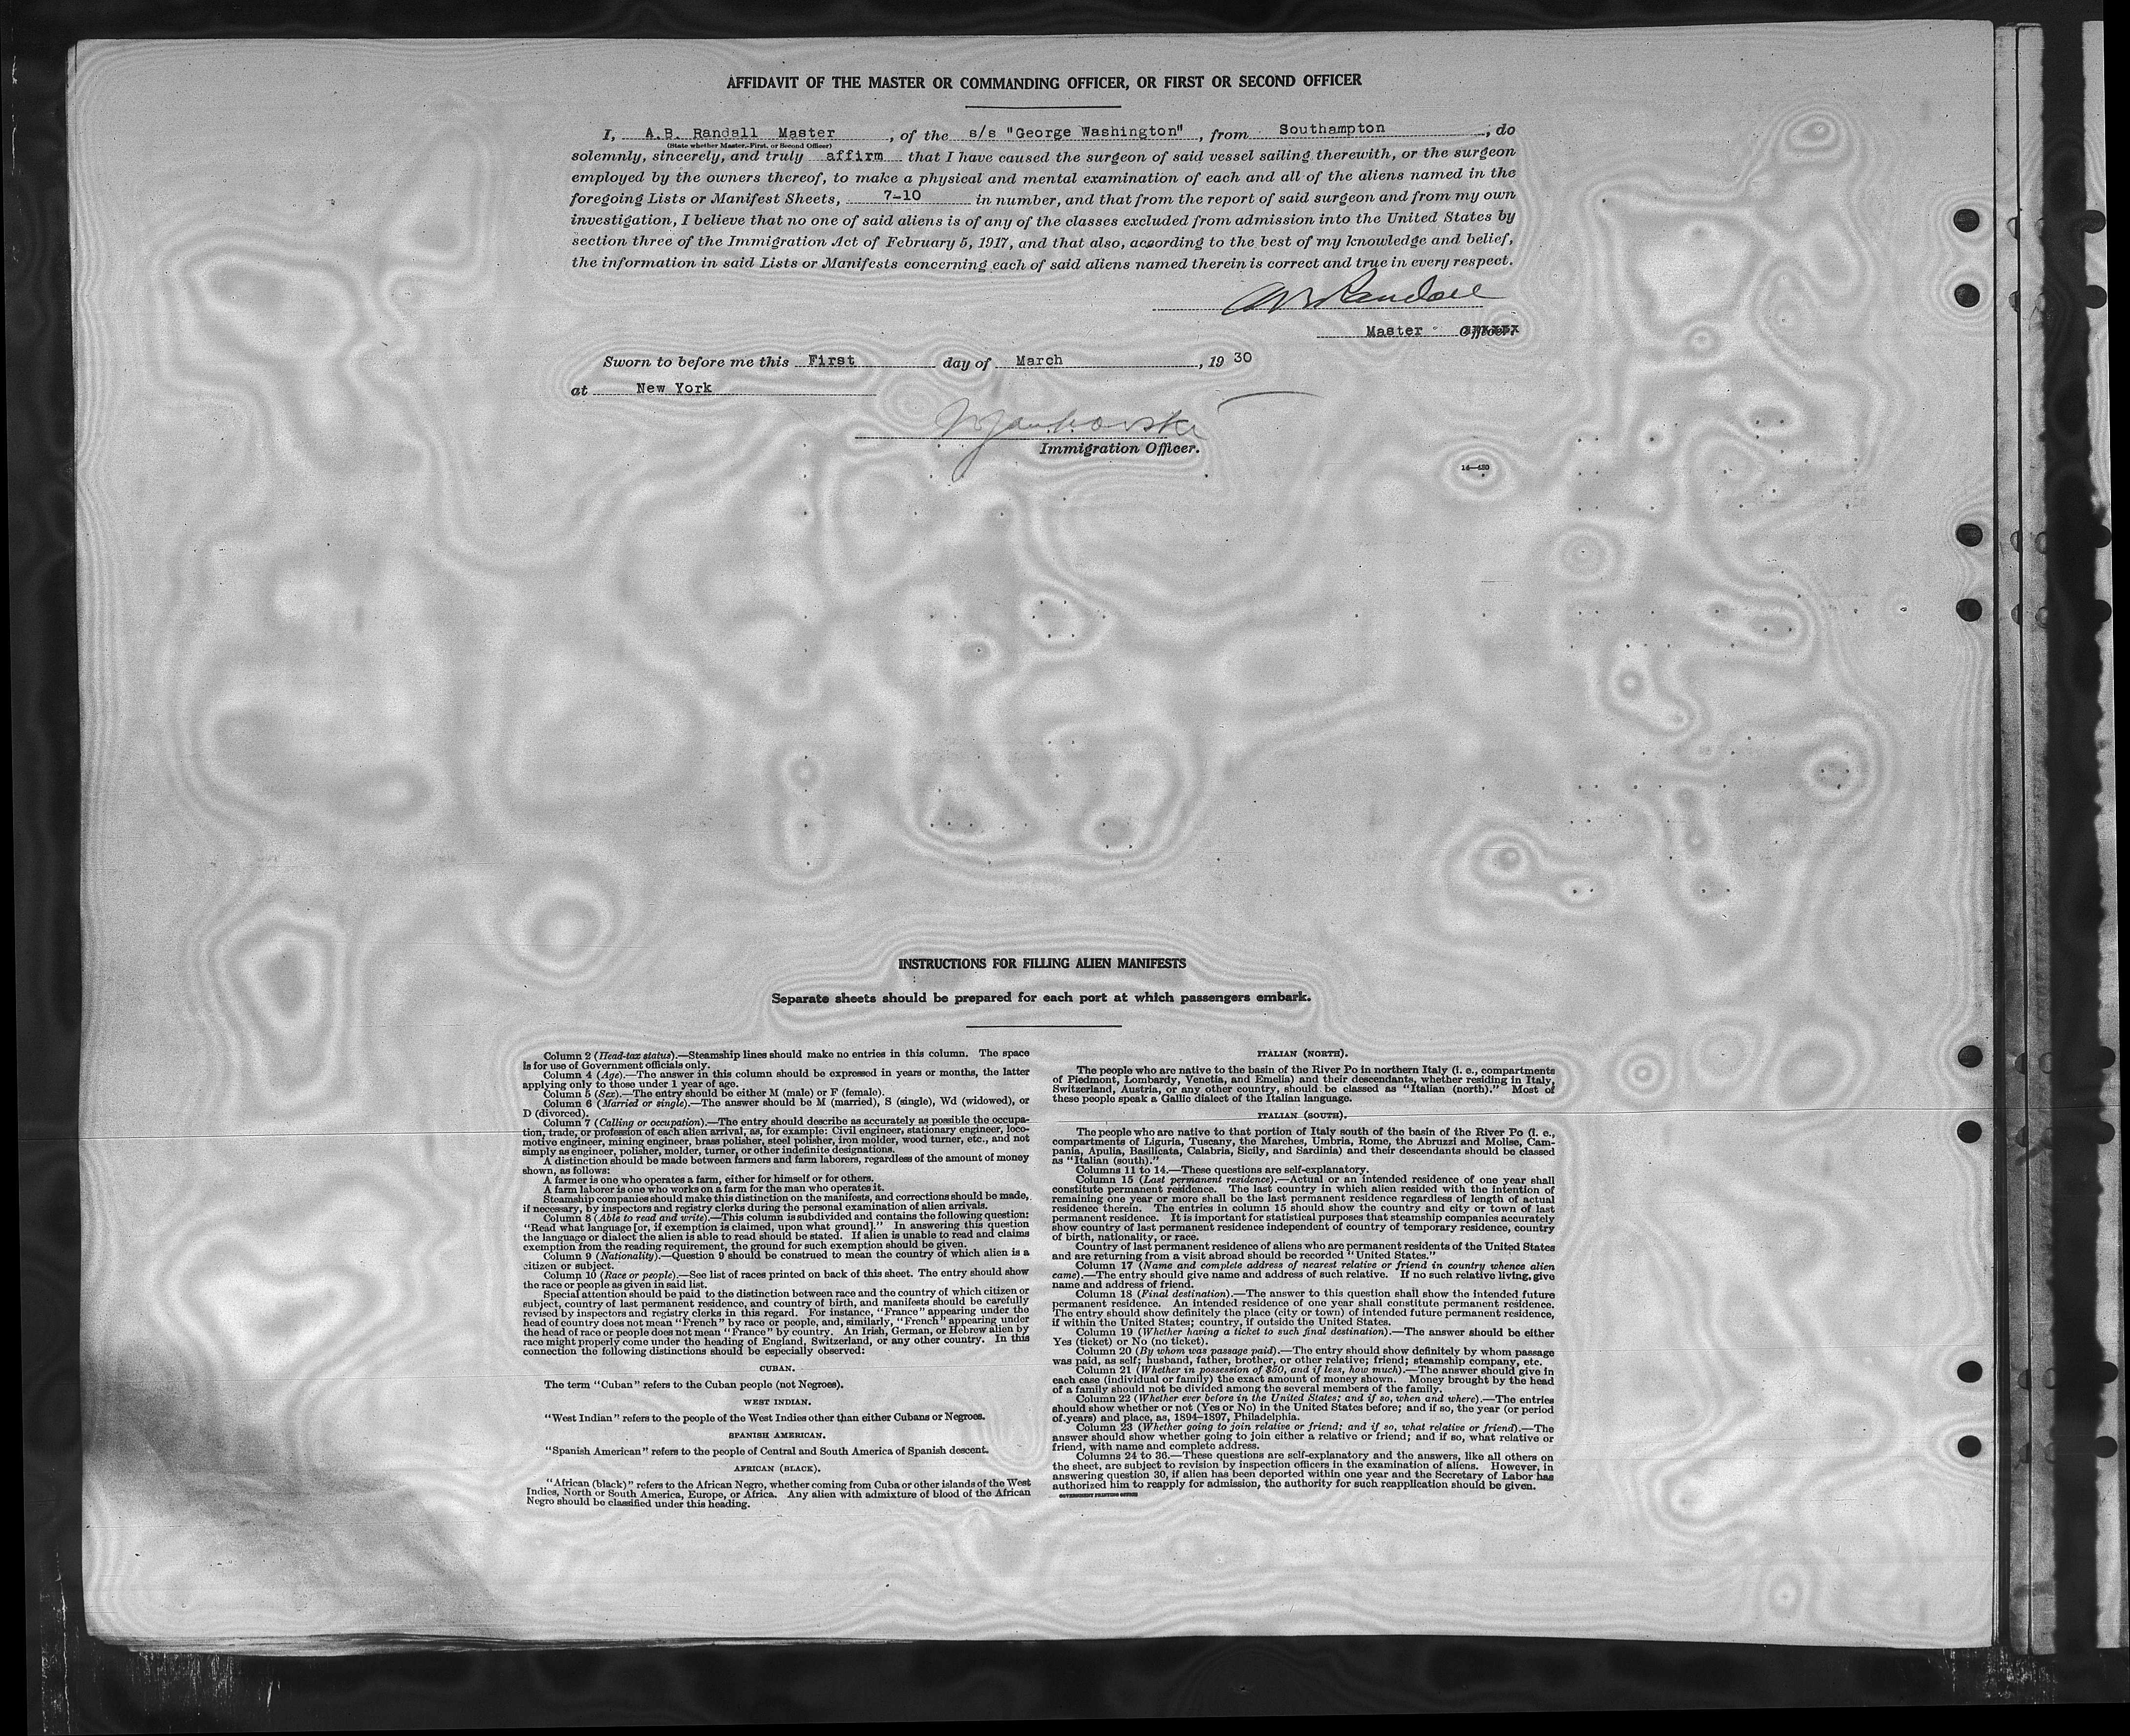 AFFIDAVIT OF THE MASTER OR COMMANDING OFFICER, OR FIRST OR SECOND OFFICER
I, A.B. Randall Master, of the s/s "George Washington", from Southampton, do
(State whether Master, First, or Second Officer)
solemnly, sincerely, and truly affirm that I have caused the surgeon of said vessel sailing therewith, or the surgeon
employed by the owners thereof, to make a physical and mental examination of each and all of the aliens named in the
foregoing Lists or Manifest Sheets, 7-10 in number, and that from the report of said surgeon and from my own
investigation, I believe that no one of said aliens is of any of the classes excluded from admission into the United States by
section three of the Immigration Act of February 5, 1917, and that also, according to the best of my knowledge and belief,
the information in said Lists or Manifests concerning each of said aliens named therein is correct and true in every respect.
AB Randall
Master Officer.
Sworn to before me this First day of March, 19 30
at New York
Immigration Officer.
14—430
INSTRUCTIONS FOR FILLING ALIEN MANIFESTS
Separate sheets should be prepared for each port at which passengers embark.
Column 2 (Head-tax status).—Steamship lines should make no entries in this column. The space
is for use of Government officials only.
Column 4 (Age).—The answer in this column should be expressed in years or months, the latter
applying only to those under 1 year of age.
Column 5 (Sex).—The entry should be either M (male) or F (female).
Column 6 (Married or single).—The answer should be M (married), S (single), Wd (widowed), or
D (divorced).
Column 7 (Calling or occupation).—The entry should describe as accurately as possible the occupa-
tion, trade, or profession of each alien arrival, as, for example: Civil engineer, stationary engineer, loco-
motive engineer, mining engineer, brass polisher, steel polisher, iron molder, wood turner, etc., and not
simply as engineer, polisher, molder, turner, or other indefinite designations.
A distinction should be made between farmers and farm laborers, regardless of the amount of money
shown, as follows:
A farmer is one who operates a farm, either for himself or for others.
A farm laborer is one who works on a farm for the man who operates it.
Steamship companies should make this distinction on the manifests, and corrections should be made,
if necessary, by inspectors and registry clerks during the personal examination of alien arrivals.
Column 8 (Able to read and write).—This column is subdivided and contains the following question:
"Read what language [or, if exemption is claimed, upon what ground]." In answering this question
the language or dialect the alien is able to read should be stated. If alien is unable to read and claims
exemption from the reading requirement, the ground for such exemption should be given.
Column 9 (Nationality).—Question 9 should be construed to mean the country of which alien is a
citizen or subject.
Column 10 (Race or people).—See list of races printed on back of this sheet. The entry should show
the race or people as given in said list.
Special attention should be paid to the distinction between race and the country of which citizen or
subject, country of last permanent residence, and country of birth, and manifests should be carefully
revised by inspectors and registry clerks in this regard. For instance, "France" appearing under the
head of country does not mean "French" by race or people, and, similarly, "French" appearing under
the head of race or people does not mean "France" by country. An Irish, German, or Hebrew alien by
race might properly come under the heading of England, Switzerland, or any other country. In this
connection the following distinctions should be especially observed:
CUBAN.
The term "Cuban" refers to the Cuban people (not Negroes).
WEST INDIAN.
"West Indian" refers to the people of the West Indies other than either Cubans or Negroes.
SPANISH AMERICAN.
"Spanish American" refers to the people of Central and South America of Spanish descent.
AFRICAN (BLACK).
"African (black)" refers to the African Negro, whether coming from Cuba or other islands of the West
Indies, North or South America, Europe, or Africa. Any alien with admixture of blood of the African
Negro should be classified under this heading.
ITALIAN (NORTH).
The people who are native to the basin of the River Po in northern Italy (i. e., compartments
of Piedmont, Lombardy, Venetia, and Emelia) and their descendants, whether residing in Italy,
Switzerland, Austria, or any other country, should be classed as "Italian (north)." Most of
these people speak a Gallic dialect of the Italian language.
ITALIAN (SOUTH).
The people who are native to that portion of Italy south of the basin of the River Po (i. e.,
compartments of Liguria, Tuscany, the Marches, Umbria, Rome, the Abruzzi and Molise, Cam-
pania, Apulia, Basilicata, Calabria, Sicily, and Sardinia) and their descendants should be classed
as "Italian (south)."
Columns 11 to 14.—These questions are self-explanatory.
Column 15 (Last permanent residence).—Actual or an intended residence of one year shall
constitute permanent residence. The last country in which alien resided with the intention of
remaining one year or more shall be the last permanent residence regardless of length of actual
residence therein. The entries in column 15 should show the country and city or town of last
permanent residence. It is important for statistical purposes that steamship companies accurately
show country of last permanent residence independent of country of temporary residence, country
of birth, nationality, or race.
Country of last permanent residence of aliens who are permanent residents of the United States
and are returning from a visit abroad should be recorded "United States."
Column 17 (Name and complete address of nearest relative or friend in country whence alien
came).—The entry should give name and address of such relative. If no such relative living, give
name and address of friend.
Column 18 (Final destination).—The answer to this question shall show the intended future
permanent residence. An intended residence of one year shall constitute permanent residence.
The entry should show definitely the place (city or town) of intended future permanent residence,
if within the United States; country, if outside the United States.
Column 19 (Whether having a ticket to such final destination).—The answer should be either
Yes (ticket) or No (no ticket).
Column 20 (By whom was passage paid).—The entry should show definitely by whom passage
was paid, as self; husband, father, brother, or other relative; friend; steamship company, etc.
Column 21 (Whether in possession of $50, and if less, how much).—The answer should give in
each case (individual or family) the exact amount of money shown. Money brought by the head
of a family should not be divided among the several members of the family.
Column 22 (Whether ever before in the United States; and if so, when and where).—The entries
should show whether or not (Yes or No) in the United States before; and if so, the year (or period
of years) and place, as, 1894–1897, Philadelphia.
Column 23 (Whether going to join relative or friend; and if so, what relative or friend).—The
answer should show whether going to join either a relative or friend; and if so, what relative or
friend, with name and complete address.
Columns 24 to 36.—These questions are self-explanatory and the answers, like all others on
the sheet, are subject to revision by inspection officers in the examination of aliens. However, in
answering question 30, if alien has been deported within one year and the Secretary of Labor has
authorized him to reapply for admission, the authority for such reapplication should be given.
GOVERNMENT PRINTING OFFICE